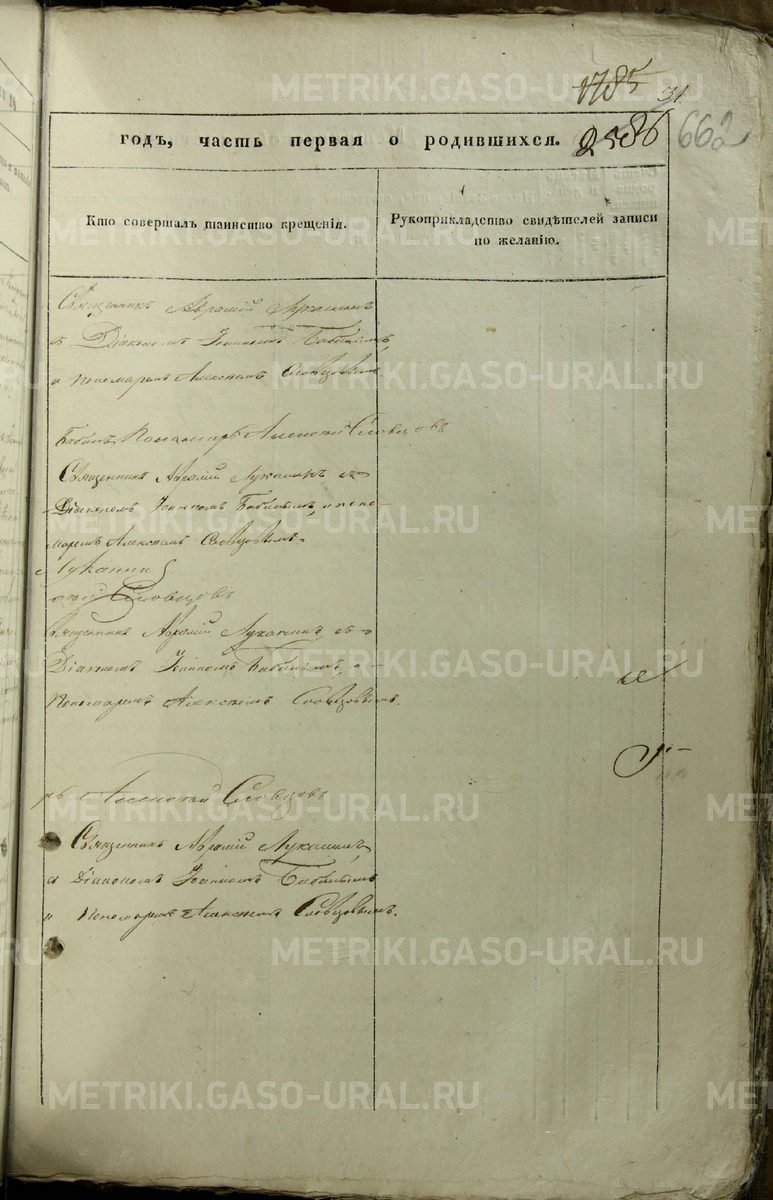 1785
31
годъ, часть первая о родившихся.
2586
662
Кто совершалъ таинство крещенія.
Рукоприкладство свидѣтелей записи
по желанію.
Священникъ Аврамій Лукатинъ
съ Діакономъ Іоанномъ Бабинымъ,
и Пономаремъ Алексѣемъ Словцовымъ
Бабинъ Пономарь Алексѣй Словцовъ
Священникъ Аврамій Лукатинъ, съ
Діакономъ Іоанномъ Бабинымъ, и поно
маремъ Алексѣемъ Словцовымъ.
Лукатин
сѣй Словцовъ
Священникъ Аврамій Лукатинъ, съ
Діакономъ Іоанномъ Бабинымъ, и
Пономаремъ Алексѣемъ Словцовымъ.
рь Алексѣй Словцовъ
Священникъ Аврамій Лукатинъ,
съ Діакономъ Іоанномъ Бабинымъ
и Пономаремъ Алексѣемъ Словцовымъ.
METRIKI.GASO-URAL.RU